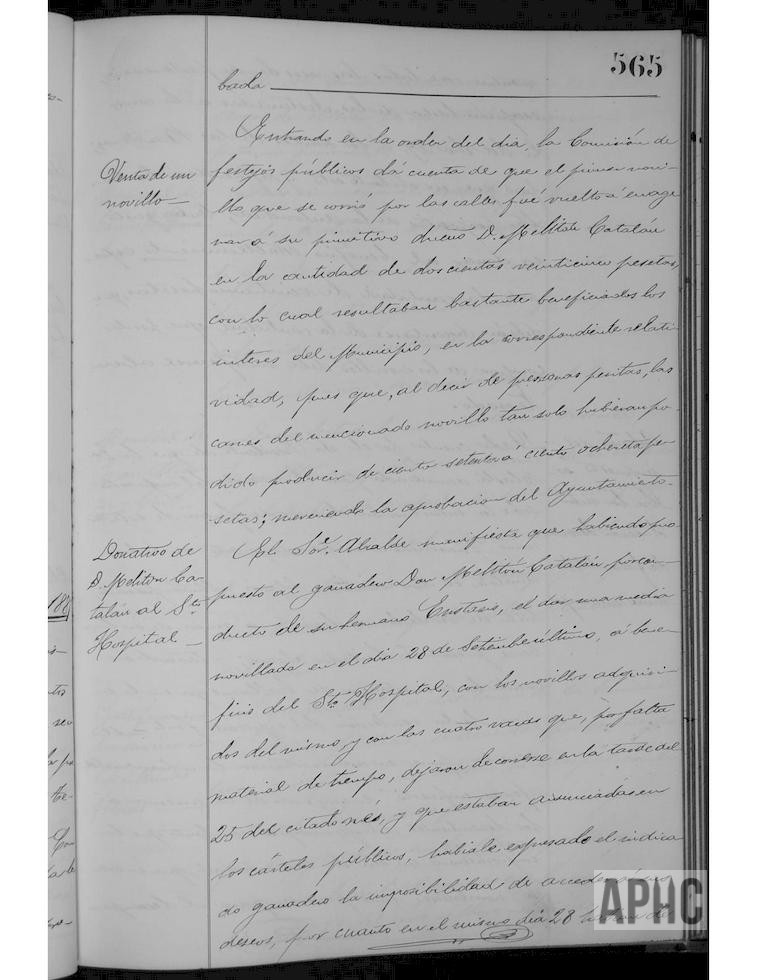 565
bada
Entrando en la orden del dia, la Comisión de
festejos públicos dá cuenta de que el primer novi-
llo que se corrió por las calles fué vuelto á enage
nar á su primitivo dueño D. Melitón Catalán
en la cantidad de doscientas veinticinco pesetas,
con lo cual resultaban bastante beneficiados los
interes del Municipio, en la correspondiente relati-
vidad, pues que, al decir de personas peritas, las
carnes del mencionado novillo tan solo hubieran po-
dido producir de ciento setenta á ciento ochenta pe-
setas; mereciendo la aprobacion del Ayuntamiento.
El Sor. Alcalde manifiesta que habiendo pro
puesto al ganadero Don Melitón Catalán, por con-
ducto de su hermano Eustasio, el dar una media
novillada en el dia 28 de Setiembre último, á bene-
ficio del Sto. Hospital, con los novillos adquiri-
dos del mismo, y con las cuatro vacas que, por falta
material de tiempo, dejaron de correrse en la tarde del
25 del citado més, y que estaban anunciadas en
los cárteles públicos, habiale expresado el indica
do ganadero la imposibilidad de acceder á sus
deseos, por cuanto en el mismo dia 28 habian de
Venta de un
novillo
Donativo de
D. Meliton Ca-
talán al Sto.
Hospital
APHC